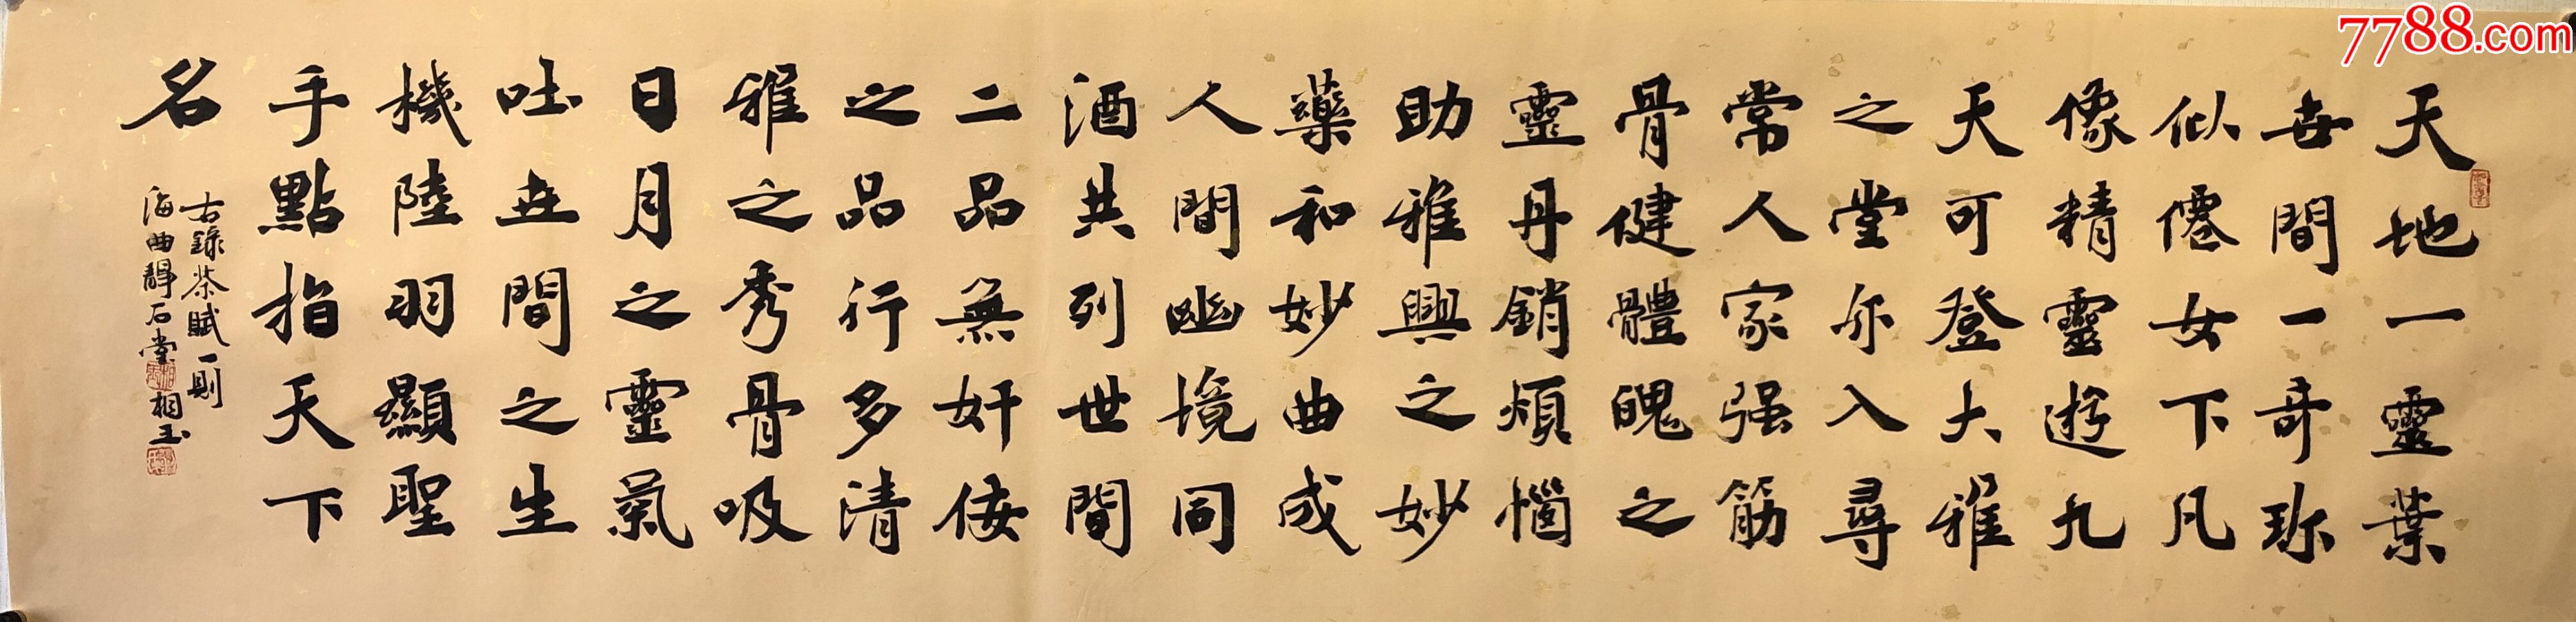 天地一靈葉
世間一奇珎
似僊女下凡
像精靈遊九
天可登大雅
之堂亦入尋
常人家强筋
骨健體魄之
靈丹銷煩惱
助雅興之妙
藥和妙曲成
人間幽境同
酒共列世間
二品無奸佞
之品行多清
雅之秀骨吸
日月之靈氣
吐世間之生
機陸羽顯聖
手點指天下
名
古錄茶賦一則
海曲靜石堂相玉
7788.com